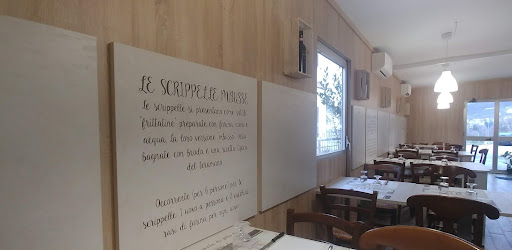 LE SCRIPPELLE MBUSSE
le scrippelle si presentano come sottili
"frittatine" preparate con farina, uova e
acqua. la loro versione 'mbusse ossia
bagnate con brodo è una ricetta tipica
del teramano.
Occorrente per 6 persone: per le
scrippelle: 1 uovo a persona e 1 cucchiaio
raso di farina per ogni uovo